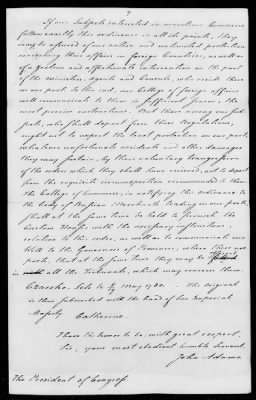 7
If our Subjects interested in maritime Commerce
follow exactly this ordinance in all its points, they
may be assured of our entire and unlimited protection
concerning their affairs in foreign Countries, as well as
of a zealous and affectionate intervention on the part
of the ministers, agents and Consuls, who reside there
on our part, to this end, our College of foreign affairs
will communicate to them in sufficient season, the
most precise instructions. But those among our Sub-
jects, who shall depart from these Regulations,
ought not to expect the least protection on our part,
whatever unfortunate accidents and other damages
they may sustain, by their voluntary transgression
of the orders which they shall have received, not to depart
from the requisite circumspection recommended to them
the College of Commerce, in notifying this ordinance to
the body of Russian Merchants trading in our ports,
shall at the same time be held to furnish the
Custom Houses with the necessary instructions,
relative to this order, as well as to communicate our
Will to the Governors of Provinces, where there are
ports, that at the same time they may be
in all the Tribunals, which may concern them.
May 1780. The original
is thus subscribed with the hand of her Imperial
Majesty Catharine.
I have the honor to be, with great respect,
Sir, your most obedient humble Servant.
John Adams.
The President of Congress.